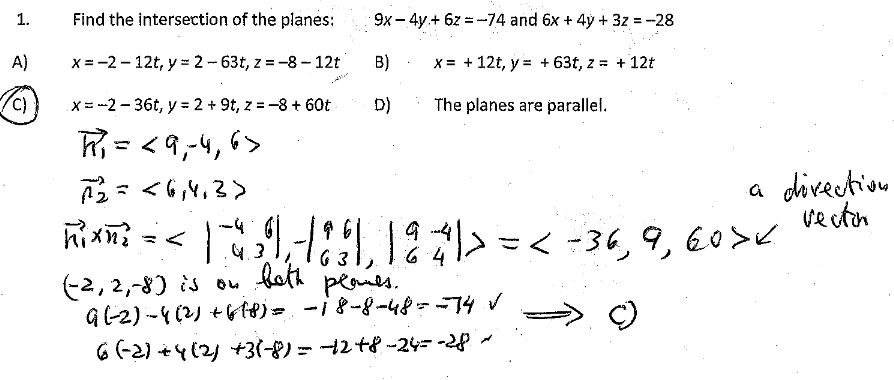 1. Find the intersection of the planes: 9x – 4y + 6z = –74 and 6x + 4y + 3z = –28
A) x = –2 – 12t, y = 2 – 63t, z = –8 – 12t B) x = + 12t, y = + 63t, z = + 12t
C) x = –2 – 36t, y = 2 + 9t, z = –8 + 60t D) The planes are parallel.
n₁ = <9,-4,6>
n₂ = <6,4,3>
a direction
vector
n₁×n₂ = < |-4 6; 4 3|, -|9 6; 6 3|, |9 -4; 6 4| > = < -36, 9, 60>
(-2, 2, -8) is on both planes.
9(-2) -4(2) +6(-8) = -18-8-48 = -74 ✓ ⟹ C)
6(-2) +4(2) +3(-8) = -12+8-24 = -28 ✓